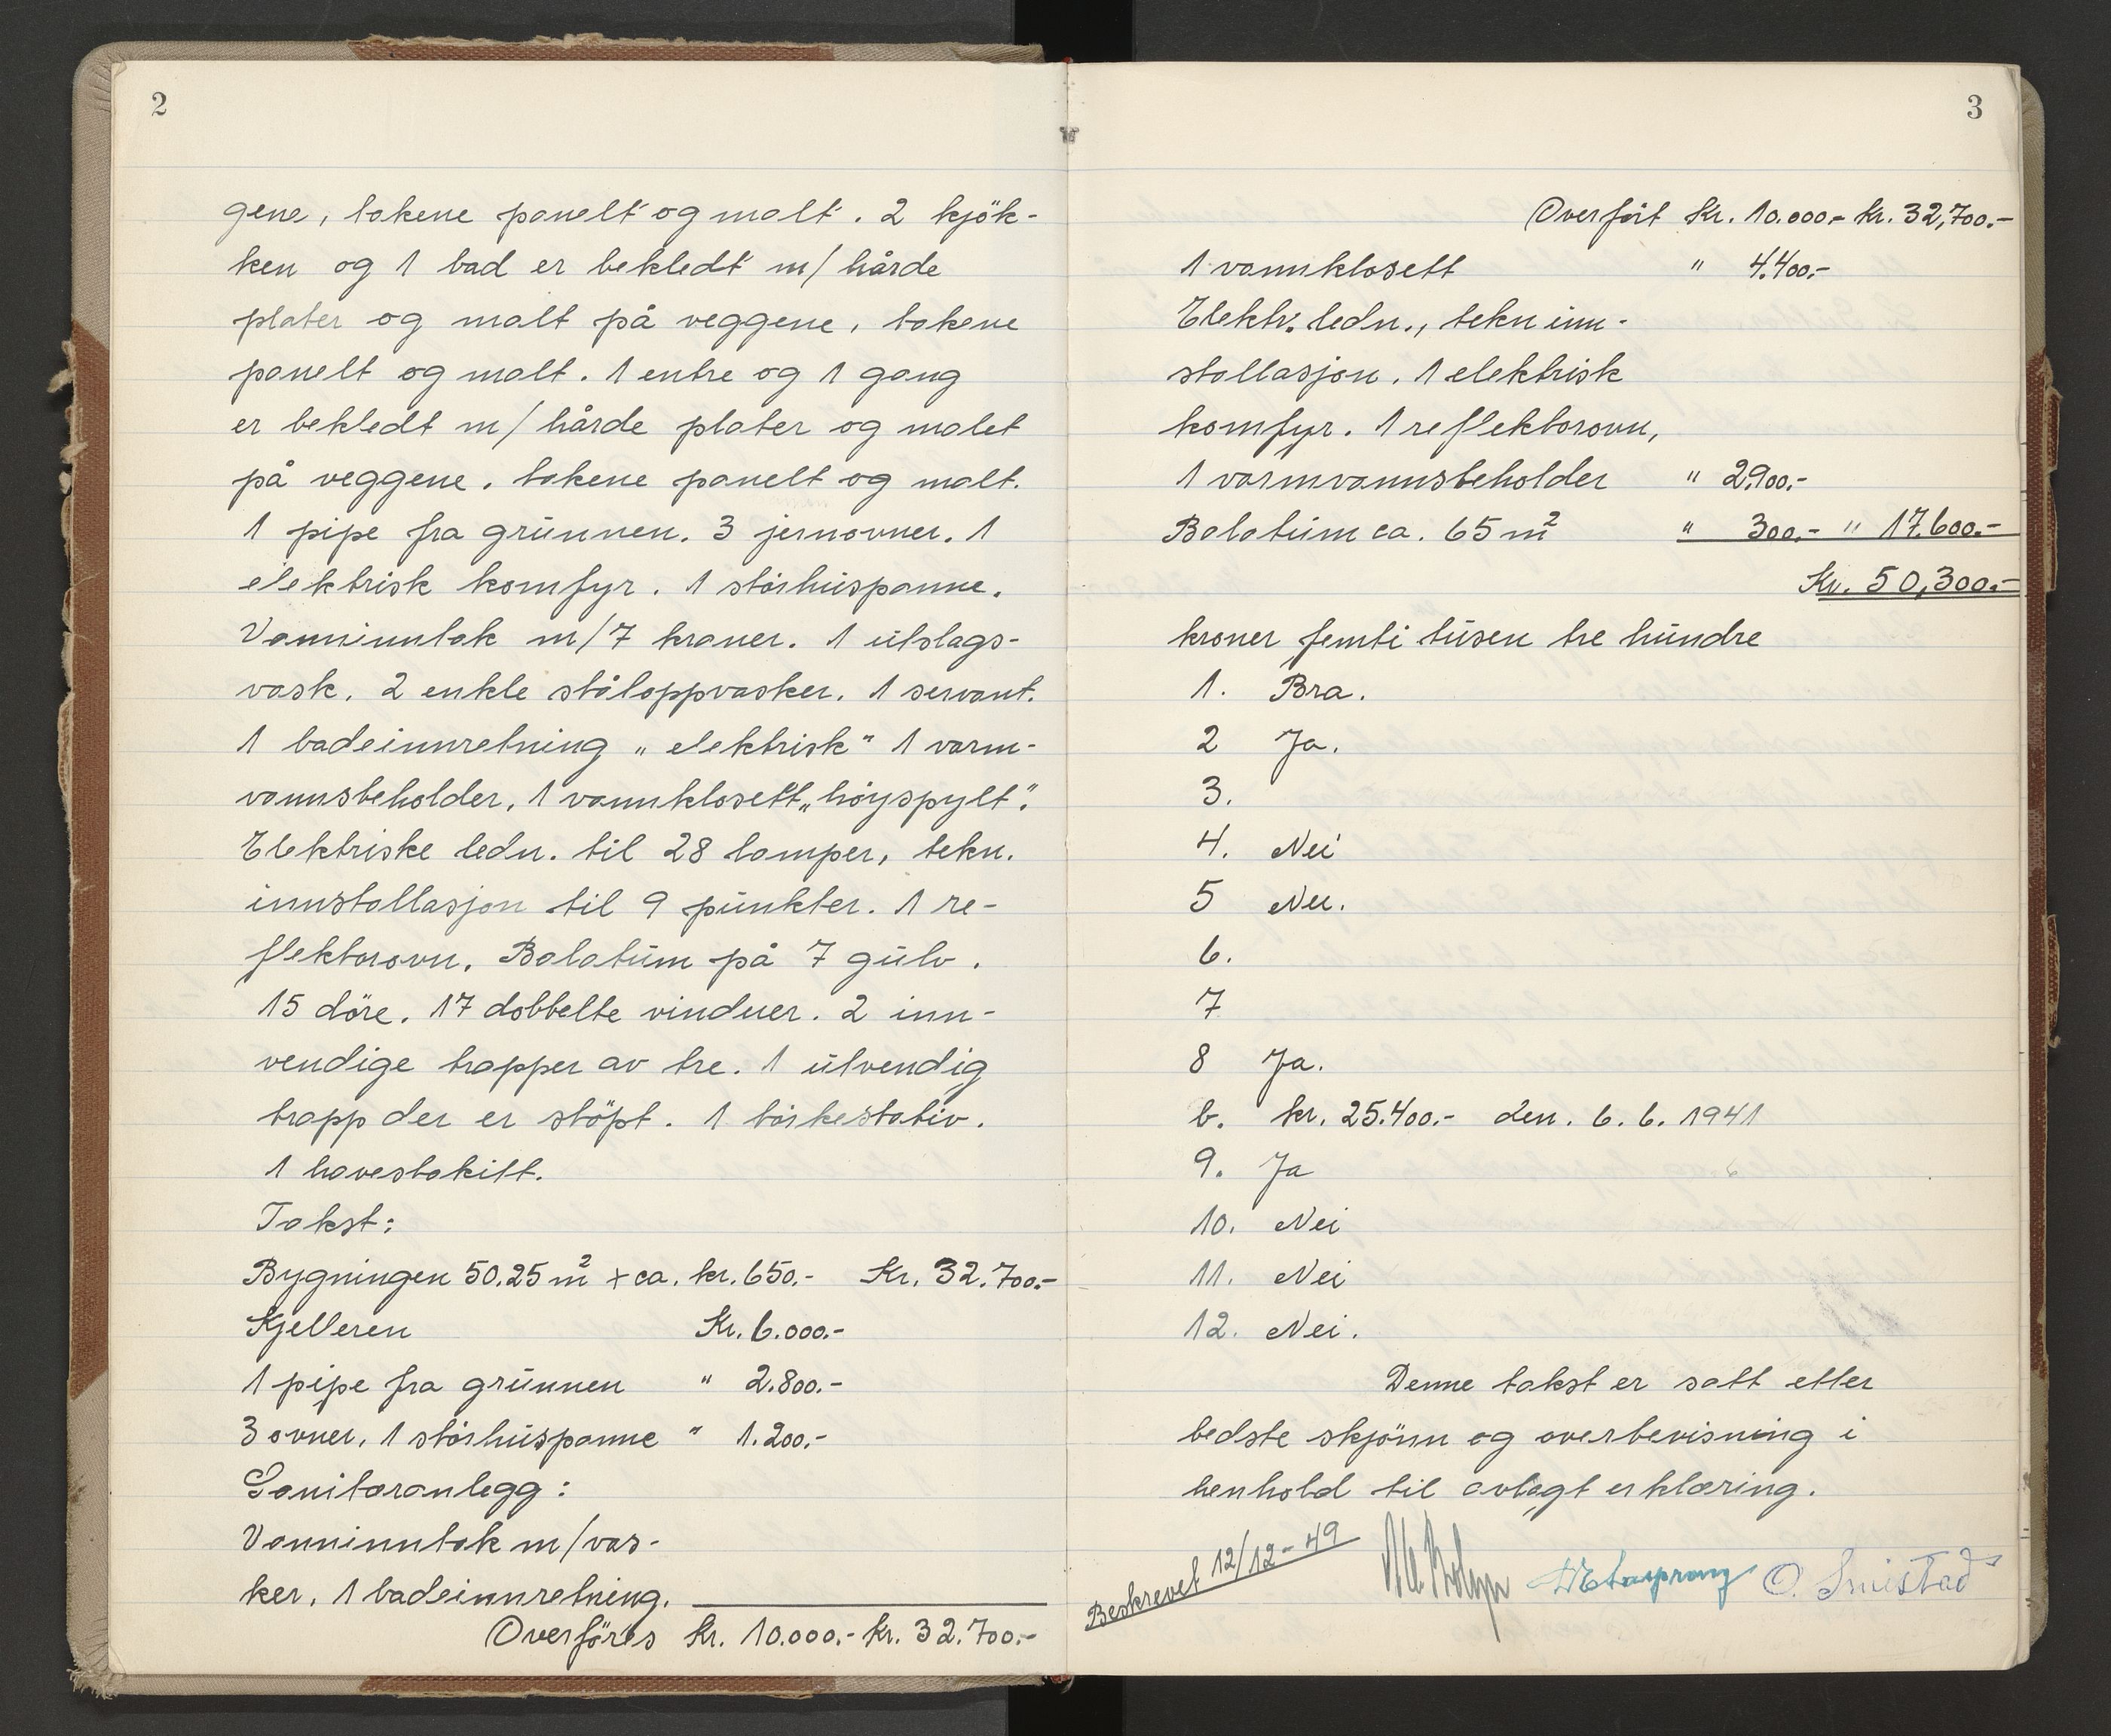 2
gene, takene panelt og malt. 2 kjök-
ken og 1 bad er bekledt m/ hårde
plater og malt på veggene, takene
panelt og malt. 1 entre og 1 gang
er bekledt m/ hårde plater og malet
på veggene. takene panelt og malt.
1 pipe fra grunnen. 3 jernovner. 1
elektrisk komfyr. 1 störhuspanne.
Vanninntak m/7 kraner. 1 utslags-
vask. 2 enkle ståloppvasker. 1 servant.
1 badeinnretning „elektrisk" 1 varm-
vannsbeholder, 1 vannklosett „höyspylt".
Elektriske ledn. til 28 lamper, tekn.
innstallasjon til 9 punkter. 1 re-
flektorovn. Balatum på 7 gulv.
15 döre. 17 dobbelte vinduer. 2 inn-
vendige trapper av tre. 1 utvendig
trapp der er stöpt. 1 törkestativ.
1 havestakitt.
Takst:
Bygningen 50.25 m² x ca. kr. 650.- Kr. 32.700.-
Kjelleren Kr. 6.000.-
1 pipe fra grunnen " 2.800.-
3 ovner, 1 störhuspanne " 1.200.-
Sanitæranlegg:
Vanninntak m/vas-
ker, 1 badeinnretning.
Overföres Kr. 10.000.- Kr. 32.700.-
3
Overfört Kr. 10.000.- Kr. 32,700.-
1 vannklosett " 4.400.-
Elektr. ledn., tekn inn-
stallasjon. 1 elektrisk
komfyr. 1 reflektorovn,
1 varmvannsbeholder " 2.900.-
Balatum ca. 65 m² " 300.- " 17.600.-
Kr. 50,300.-
kroner femti tusen tre hundre
1. Bra.
2 Ja.
3.
4. Nei
5 Nei.
6.
7
8 Ja.
b. kr. 25.400.- den. 6.6.1941
9. Ja
10. Nei
11. Nei
12. Nei.
Denne takst er satt etter
bedste skjönn og overbevisning i
henhold til avlagt erklæring.
Beskrevet 12/12-49 O. Smistad